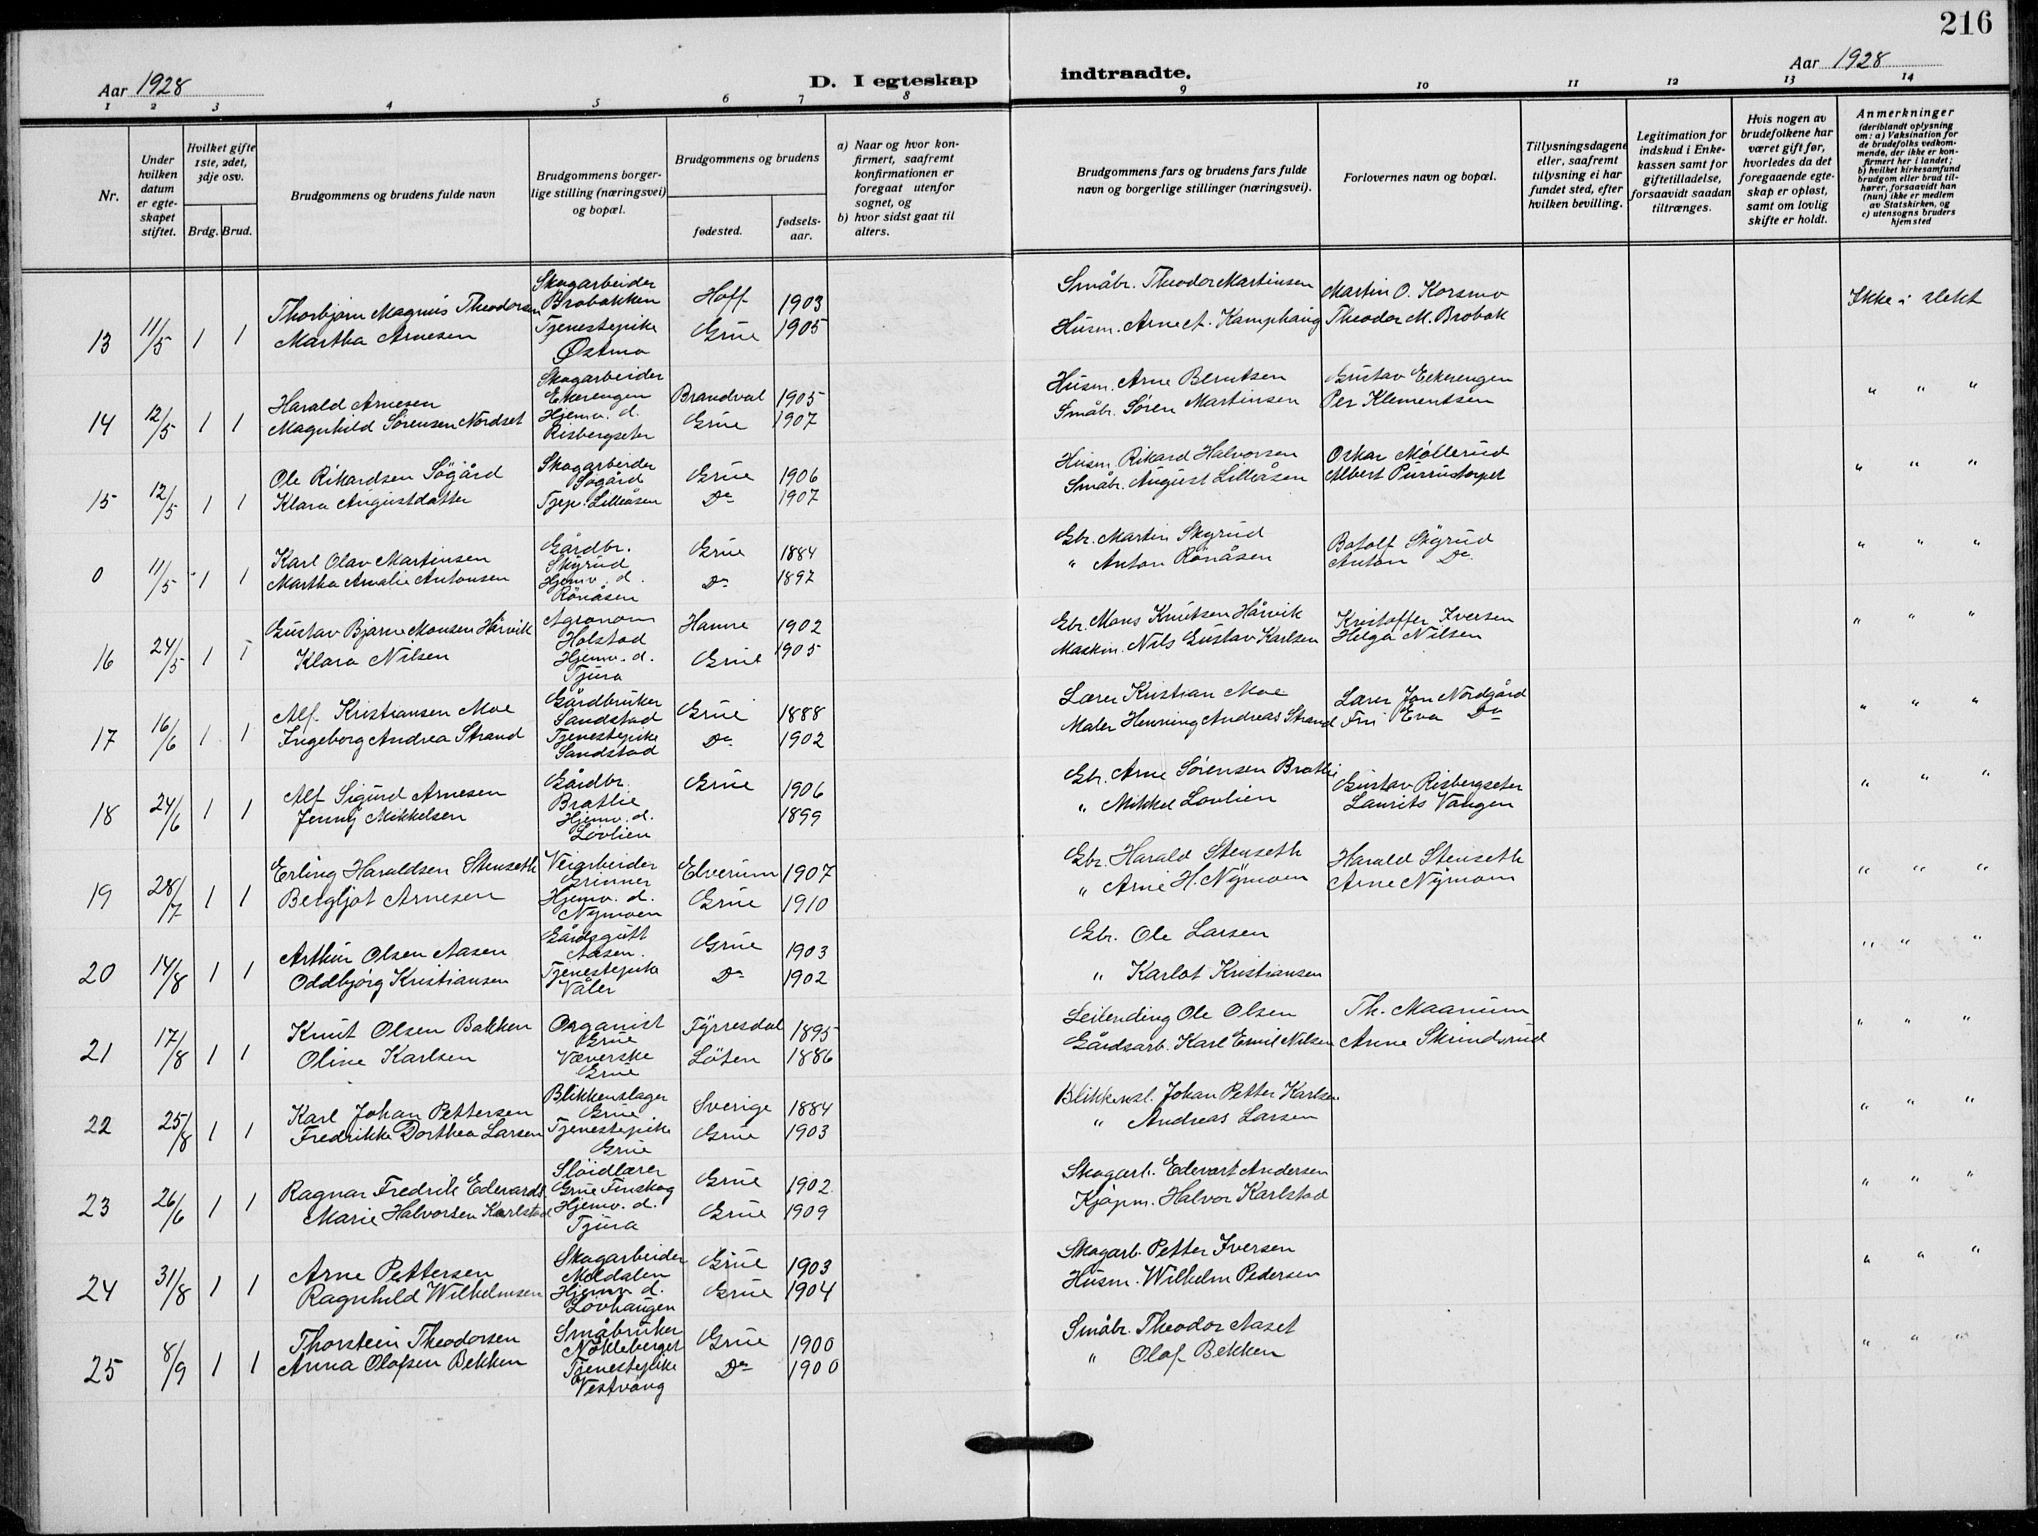 216
Aar 1928
D. I egteskap indtraadte.
Aar 1928
1 2 3 4 5 6 7 8 9 10 11 12 13 14
Nr.
Under hvilken datum er egteskapet stiftet.
Hvilket gifte 1ste, 2det, 3dje osv.
Brdg. Brud.
Brudgommens og brudens fulde navn
Brudgommens borgerlige stilling (næringsvei) og bopæl.
Brudgommens og brudens
fødested.
fødselsaar.
a) Naar og hvor konfirmert, saafremt konfirmationen er foregaat utenfor sognet, og
b) hvor sidst gaat til alters.
Brudgommens fars og brudens fars fulde navn og borgerlige stillinger (næringsvei).
Forlovernes navn og bopæl.
Tillysningsdagene eller, saafremt tillysning ei har fundet sted, efter hvilken bevilling.
Legitimation for indskud i Enkekassen samt for giftetilladelse, forsaavidt saadan tiltrænges.
Hvis nogen av brudefolkene har været gift før, hvorledes da det foregaaende egteskap er opløst, samt om lovlig skifte er holdt.
Anmerkninger
(deriblandt oplysning om: a) Vaksination for de brudefolks vedkommende, der ikke er konfirmert her i landet; b) hvilket kirkesamfund brudgom eller brud tilhører, forsaavidt han (hun) ikke er medlem av Statskirken, og c) utensogns bruders hjemsted
13 11/5 1 1 Thorbjørn Magnus Theodorsen Skogarbeider Brobakken Hoff 1903 Småbr. Theodor Martinsen Martin O. Korsmo Ikke i slekt
Martha Arnesen Tjenestepike Østmo Grue 1905 Husm. Arne A. Kamphaug Theodor M. Brobak
14 12/5 1 1 Harald Arnesen Skogarbeider Ekerengen Brandval 1905 Husm. Arne Berntsen Gustav Eekerengen " " "
Magnhild Sørensen Nordset Hjemv. d. Risbergseter Grue 1907 Småbr. Søren Martinsen Per Klementsen
15 12/5 1 1 Ole Rikardsen Søgård Skogarbeider Søgård Grue 1906 Husm. Rikard Halvorsen Oskar Møllerud " " "
Klara Augustdatter Tjep. Lilleåsen Do 1907 Småbr. August Lilleåsen Albert Purrustorpet
0 11/5 1 1 Karl Olav Martinsen Gårdbr. Skyrud Grue 1884 Gbr. Martin Skyrud Botolf Skyrud " " "
Martha Amalie Antonsen Hjemv. d. Rönåsen Do 1897 " Anton Rönåsen Anton Do
16 24/5 1 1 Gustav Bjarne Monsen Hårvik Agronom Holstad Hamre 1902 Gbr. Mons Knutsen Hårvik Kristoffer Iversen " " "
Klara Nilsen Hjemv. d. Tjura Grue 1905 Maskin. Nils Gustav Karlsen Helga Nilsen
17 16/6 1 1 Alf Kristiansen Moe Gårdbruker Sandstad Grue 1888 Lærer Kristian Moe Lærer Jon Nordgård " " "
Ingeborg Andrea Strand Tjenestepike Sandstad Do 1902 Maler Henning Andreas Strand Fru Eva Do
18 24/6 1 1 Alf Sigurd Arnesen Gårdbr. Bratlie Grue 1906 Gbr. Arne Sørensen Bratlie Gustav Risbergseter " " "
Jenny Mikkelsen Hjemv. d. Lovlien 1899 " Mikkel Lovlien Laurits Vangen
19 28/7 1 1 Erling Haraldsen Stenseth Veiarbeider Grinner Elverum 1907 Gbr. Harald Stenseth Harald Stenseth " " "
Bergljot Arnesen Hjemv. d. Nymoen Grue 1910 " Arne H. Nymoen Arne Nymoen
20 14/8 1 1 Arthur Olsen Aasen Gårdsgutt Aasen. Grue 1903 Gbr. Ole Larsen " " "
Oddbjørg Kristiansen Tjenestepike Våler Do 1902 " Karlot Kristiansen
21 17/8 1 1 Knut Olsen Bakken Organist Grue Fyrresdal 1895 Leilending Ole Olsen Th. Maanum " " "
Oline Karlsen Væverske Grue Löten 1886 Gårdsarb. Karl Emil Nilsen Arne Skrindsrud
22 25/8 1 1 Karl Johan Pettersen Blikkenslager Grue Sverige 1884 Blikkensl. Johan Petter Karlsen " " "
Fredrikke Dorthea Larsen Tjenestepike Grue Grue 1903 " Andreas Larsen
23 26/6 1 1 Ragnar Fredrik Edvards Slöidlærer Grue Finskog Grue 1902. Skogarb. Edevart Andersen " " "
Marie Halvorsen Karlstad Hjemv. d. Tjura Grue 1909 Kjøpm. Halvor Karlstad
24 31/8 1 1 Arne Pettersen Skogarbeider Moldalen Grue 1903 Skogarb. Petter Iversen " " "
Ragnhild Wilhelmsen Hjemv. d. Lovhaugen Grue 1904 Husm. Wilhelm Pedersen
25 8/9 1 1 Thorstein Theodorsen Småbruker Nökleberget Grue 1900 Småbr. Theodor Aaset " " "
Anna Olafsen Bekken Tjenestepike Vestvang Do 1900 " Olaf Bekken